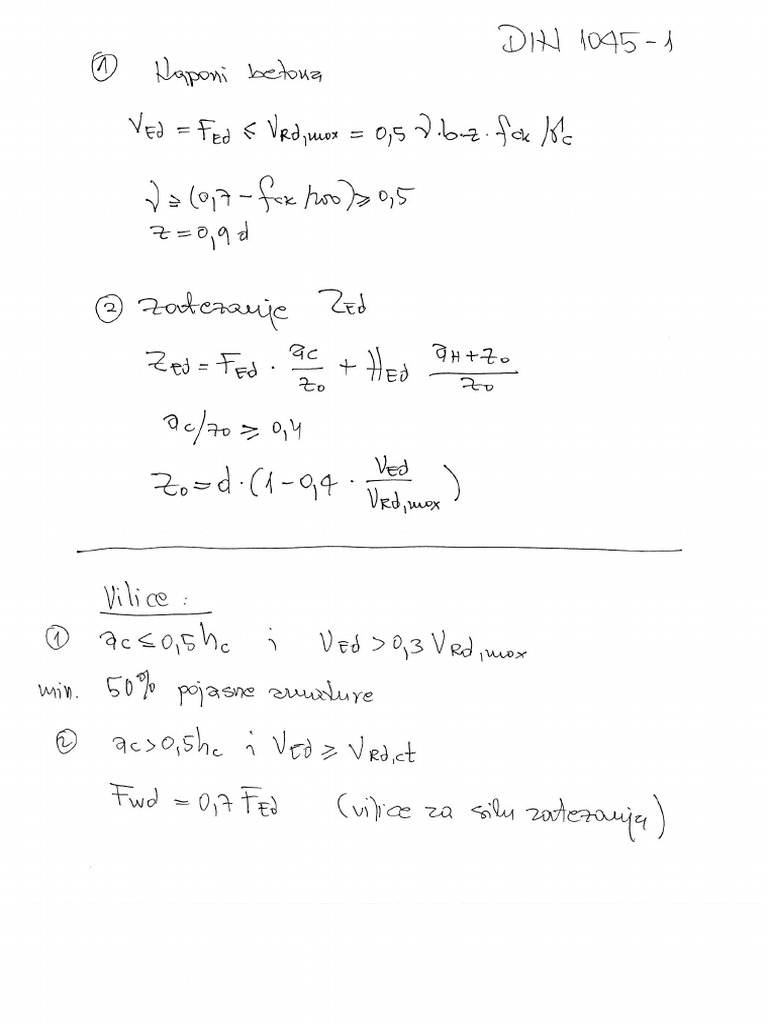 DIN 1045-1
① Naponi betona
V_Ed = F_Ed ≤ V_Rd,max = 0,5 ν·b·z·f_ck/γ_c
ν ≥ (0,7 - f_ck/200) ≥ 0,5
z = 0,9 d
② Zatezanje Z_Ed
Z_Ed = F_Ed · a_c/z_0 + H_Ed (a_H+z_0)/z_0
a_c/z_0 ≥ 0,4
z_0 = d·(1-0,4 · V_Ed/V_Rd,max)
Vilice:
① a_c ≤ 0,5h_c i V_Ed > 0,3 V_Rd,max
min. 50% pojasne armature
② a_c > 0,5h_c i V_Ed ≥ V_Rd,ct
F_wd = 0,7 F_Ed (vilice za silu zatezanja)